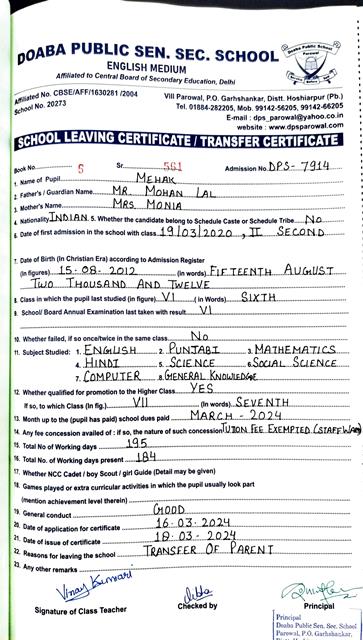 DOABA PUBLIC SEN. SEC. SCHOOL
ENGLISH MEDIUM
Affiliated to Central Board of Secondary Education, Delhi
Affiliated No. CBSE/AFF/1630281 /2004
School No. 20273
Vill Parowal, P.O. Garhshankar, Distt. Hoshiarpur (Pb.)
Tel. 01884-282205, Mob. 99142-56205, 99142-66205
E-mail : dps_parowal@yahoo.co.in
website : www.dpsparowal.com
SCHOOL LEAVING CERTIFICATE / TRANSFER CERTIFICATE
Book No. 5 Sr. 561 Admission No. DPS-7914
1. Name of Pupil MEHAK
2. Father's / Guardian Name MR. MOHAN LAL
3. Mother's Name MRS. MONIA
4. Nationality INDIAN 5. Whether the candidate belong to Schedule Caste or Schedule Tribe NO
6. Date of first admission in the school with class 19/03/2020, II SECOND
7. Date of Birth (In Christian Era) according to Admission Register
(In figures) 15-08-2012 (in words) FIFTEENTH AUGUST
TWO THOUSAND AND TWELVE
8. Class in which the pupil last studied (in figure) VI ( in Words) SIXTH
9. School/ Board Annual Examination last taken with result VI
10. Whether failed, if so once/twice in the same class No
11. Subject Studied: 1. ENGLISH 2. PUNJABI 3. MATHEMATICS
4. HINDI 5. SCIENCE 6. SOCIAL SCIENCE
7. COMPUTER 8. GENERAL KNOWLEDGE
12. Whether qualified for promotion to the Higher Class YES
If so, to which Class (In fig.) VII (In words) SEVENTH
13. Month up to the (pupil has paid) school dues paid MARCH - 2024
14. Any fee concession availed of : if so, the nature of such concession TUTION FEE EXEMPTED (STAFF WARD)
15. Total No of Working days 195
16. Total No. of Working days present 184
17. Whether NCC Cadet / boy Scout / girl Guide (Detail may be given)
18. Games played or extra curricular activities in which the pupil usually look part
(mention achievement level therein)
19. General conduct GOOD
20. Date of application for certificate 16-03-2024
21. Date of issue of certificate 18-03-2024
22. Reasons for leaving the school TRANSFER OF PARENT
23. Any other remarks
Vinay Kumari
Signature of Class Teacher Checked by Principal
Principal
Doaba Public Sen. Sec. School
Parowal, P.O. Garhshankar,